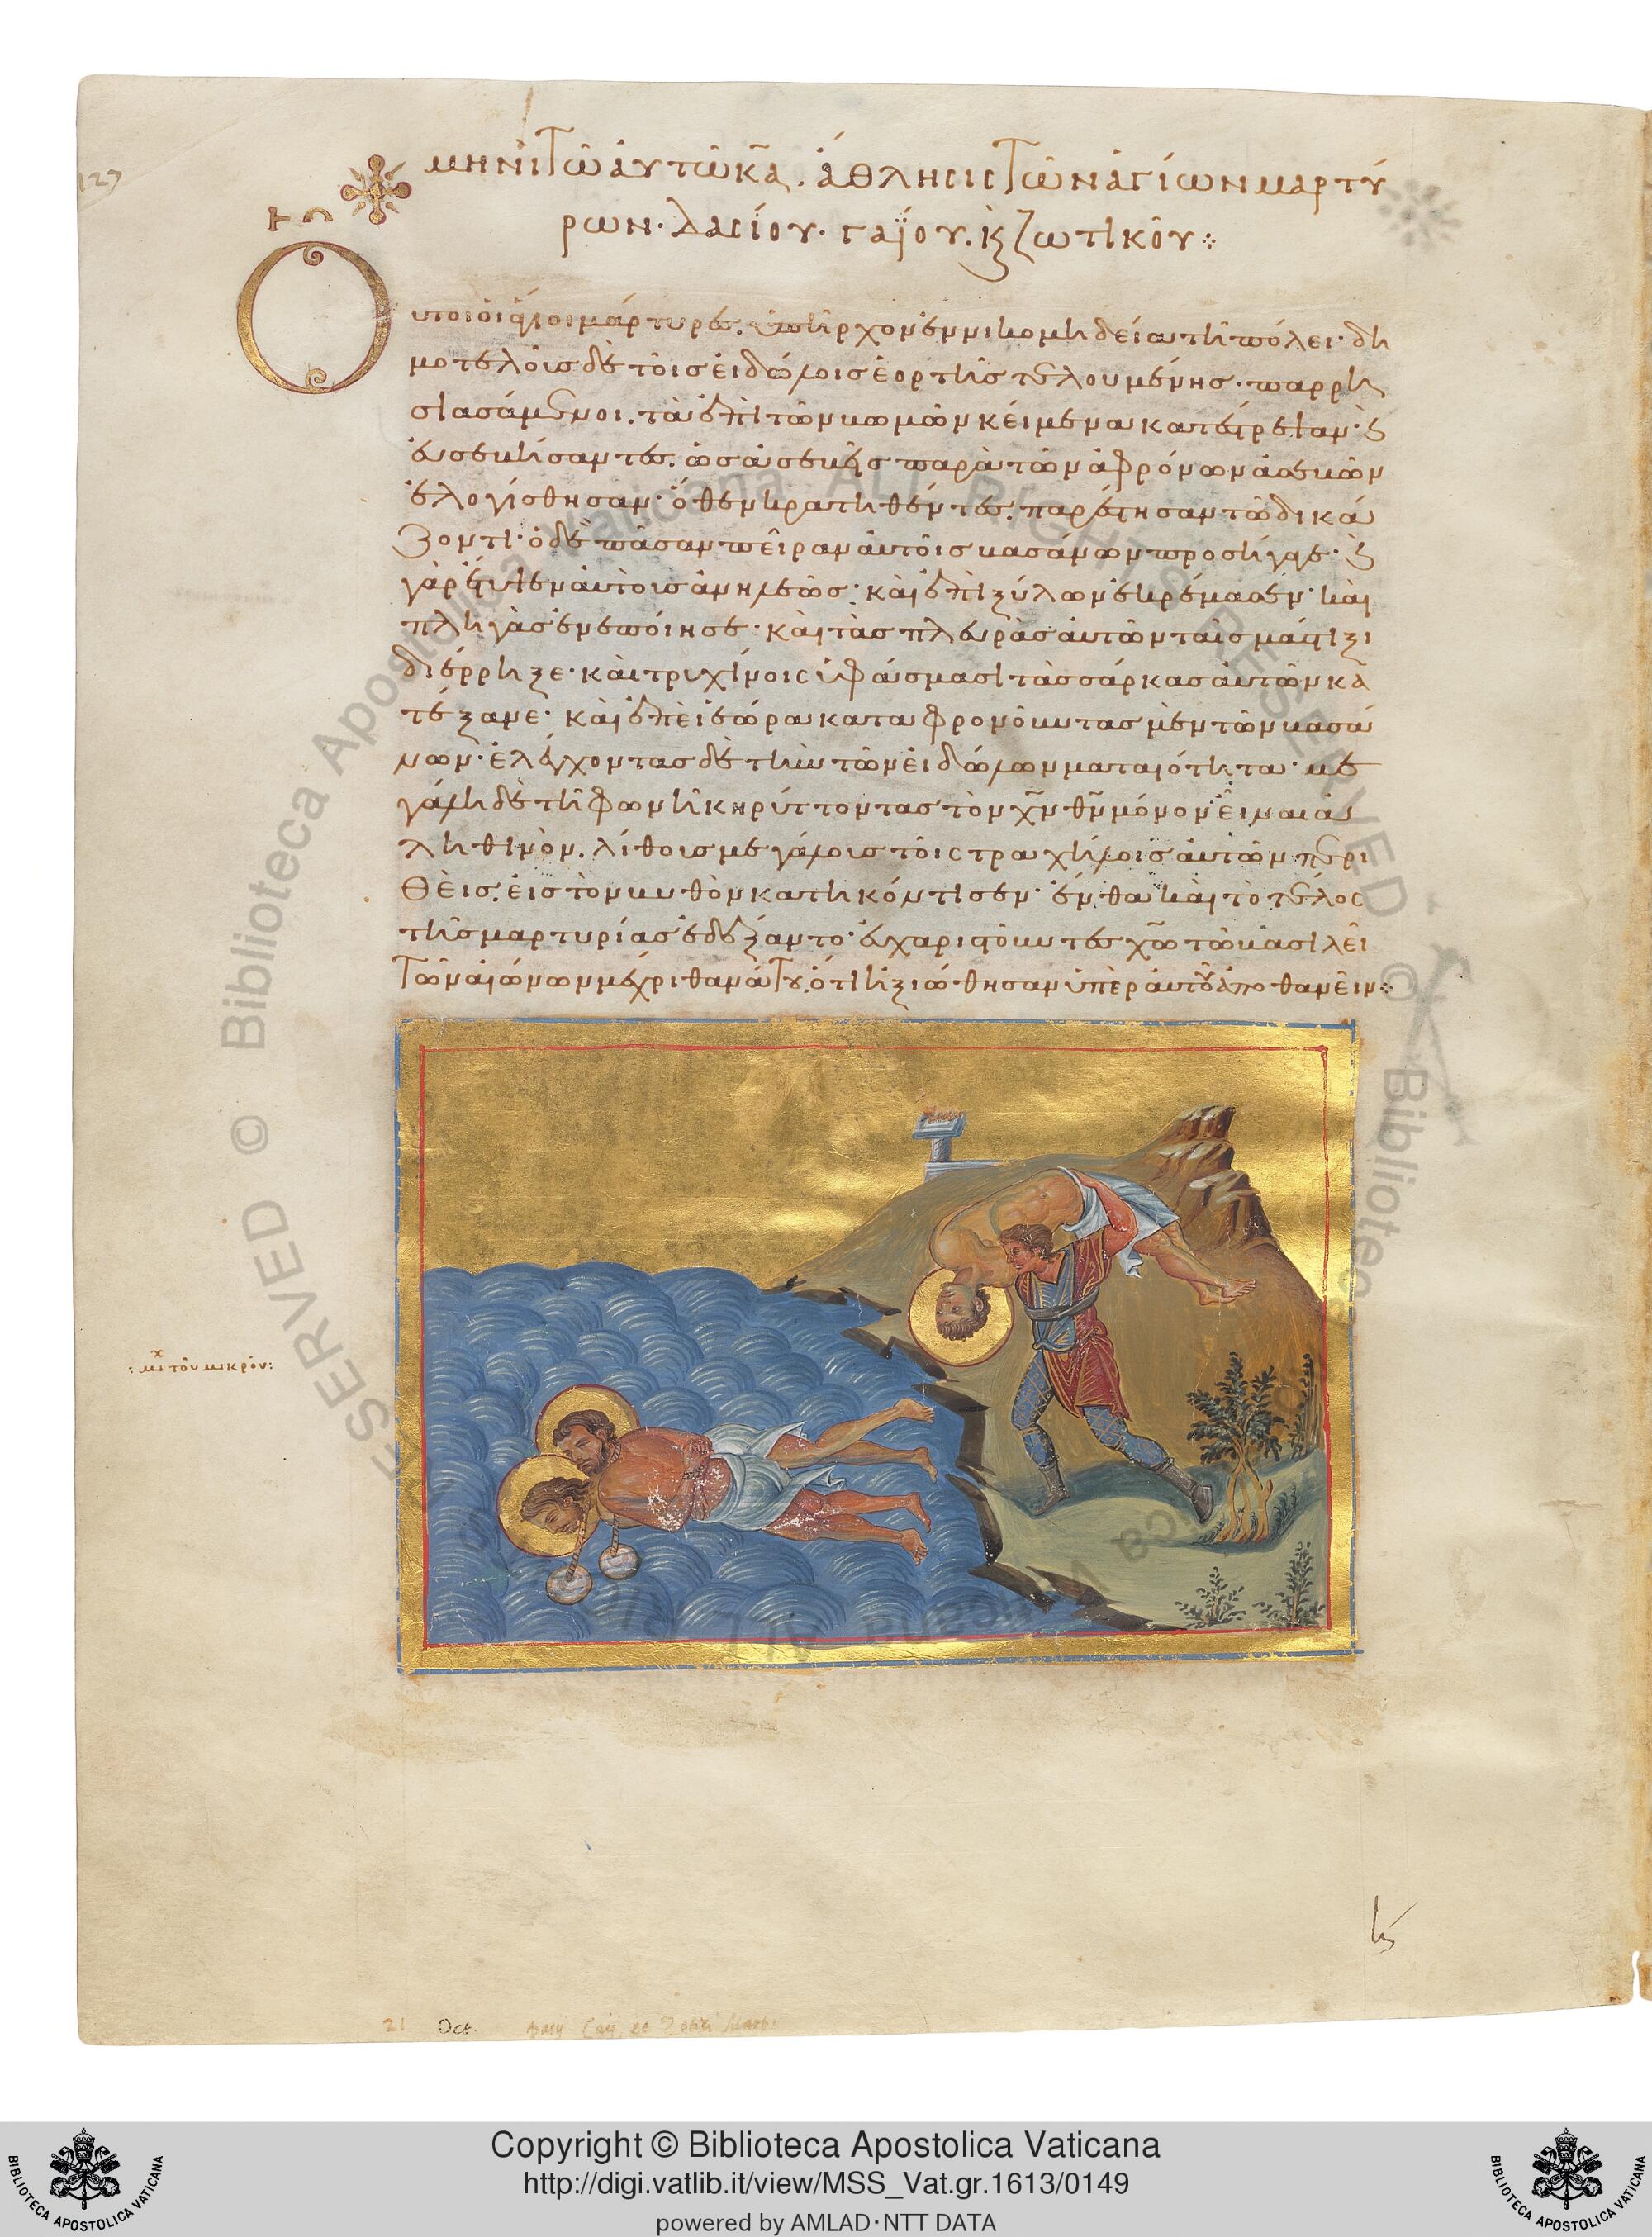 127
μηνὶ τῶ αὐτῶ κᾱ. ἄθλησις τῶν ἁγίων μαρτύ
ρων· δασίου· γαΐου. κ ζωτικοῦ
τς
Ο
ὗτοι οἱ ἅγιοι μάρτυρες. ὑπῆρχον ἐν νικομηδεία τῆ πόλει· δη
μοτελοῦς δὲ τοῖς εἰδώλοις ἑορτῆς τελουμένης· παρρη
σιασάμενοι. τὰ ἐπὶ τῶν βωμῶν κείμενα κατέστρεψαν· κ
εὐσεβήσαντες. ὡς ἀσεβεῖς παρὰ τῶν ἀφρόνων ἀσεβῶν
ἐλογίσθησαν· ὅθεν κρατηθέντες. παρέστησαν τῶ δικά
ζοντι· ὁ δὲ πᾶσαν πεῖραν αὐτοῖς βασάνων προσήγαγε· κ
γὰρ ἔτυψεν αὐτοὺς ἀνηλεῶς· καὶ ἐπὶ ξύλων ἐκρέμασεν· καὶ
πληγὰς ἐνεποίησε· καὶ τὰς πλευρὰς αὐτῶν ταῖς μάστιξι
διέρρηξε· καὶ τριχίνοις ὑφάσμασι τὰς σάρκας αὐτῶν κα
τέξανε· καὶ ἐπεὶ ἑώρα καταφρονοῦντας μὲν τῶν βασά
νων· ἐλέγχοντας δὲ τὴν τῶν εἰδώλων ματαιότητα· με
γάλη δὲ τῆ φωνῆ κηρύττοντας τὸν χν θν μόνον εἶναι ἀ
ληθινὸν. λίθοις μεγάλοις τοῖς τραχήλοις αὐτῶν περι
θεὶς. εἰς τὸν βυθὸν κατηκόντισεν· ἔνθα καὶ τὸ τέλος
τῆς μαρτυρίας ἐδέξαντο· εὐχαριστοῦντες χω τῶ βασιλεῖ
τῶν αἰώνων μέχρι θανάτου. ὅτι ἠξιώθησαν ὑπὲρ αὐτοῦ ἀποθανεῖν
: μιχ τοῦ μικροῦ:
21 Oct. Dasij Caij et Zotici Mart.
Biblioteca Apostolica Vaticana ALL RIGHTS RESERVED ©
Copyright © Biblioteca Apostolica Vaticana
http://digi.vatlib.it/view/MSS_Vat.gr.1613/0149
powered by AMLAD·NTT DATA
BIBLIOTECA APOSTOLICA VATICANA
BIBLIOTECA APOSTOLICA VATICANA